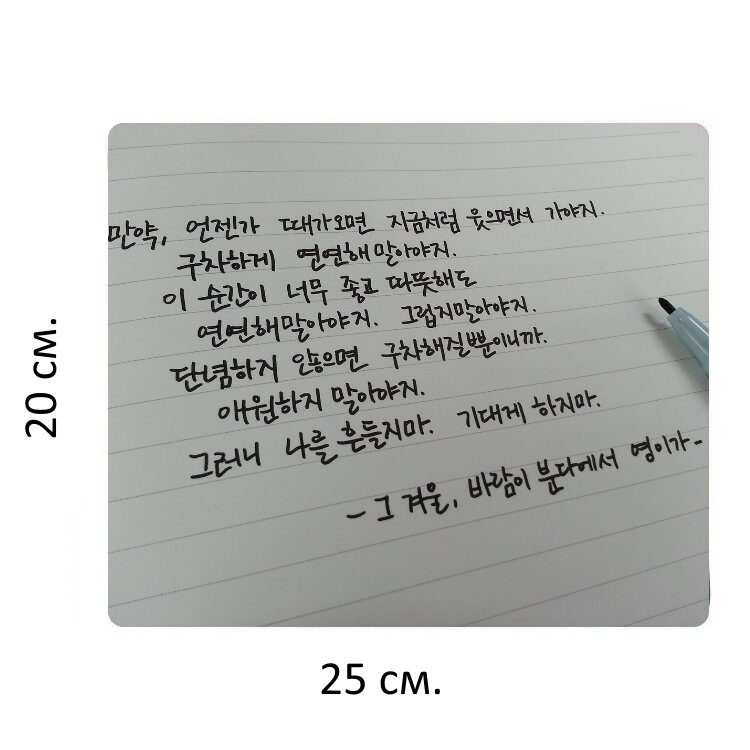 만약, 언젠가 때가오면 지금처럼 웃으면서 가야지.
구차하게 연연해말아야지.
이 순간이 너무 좋고 따뜻해도
연연해말아야지. 그럽지말아야지.
단념하지 않으면 구차해질뿐이니까.
애원하지 말아야지.
그러니 나를 흔들지마. 기대게 하지마.
- 그 겨울, 바람이 분다에서 영이가-
20 см.
25 см.